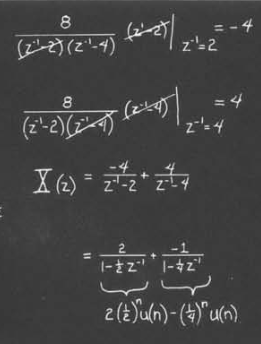 8 / ((z⁻¹-2)(z⁻¹-4)) (z⁻¹-2) | z⁻¹=2 = -4
8 / ((z⁻¹-2)(z⁻¹-4)) (z⁻¹-4) | z⁻¹=4 = 4
X(z) = -4/(z⁻¹-2) + 4/(z⁻¹-4)
= 2/(1-½z⁻¹) + -1/(1-¼z⁻¹)
2(½)ⁿu(n)-(¼)ⁿu(n)